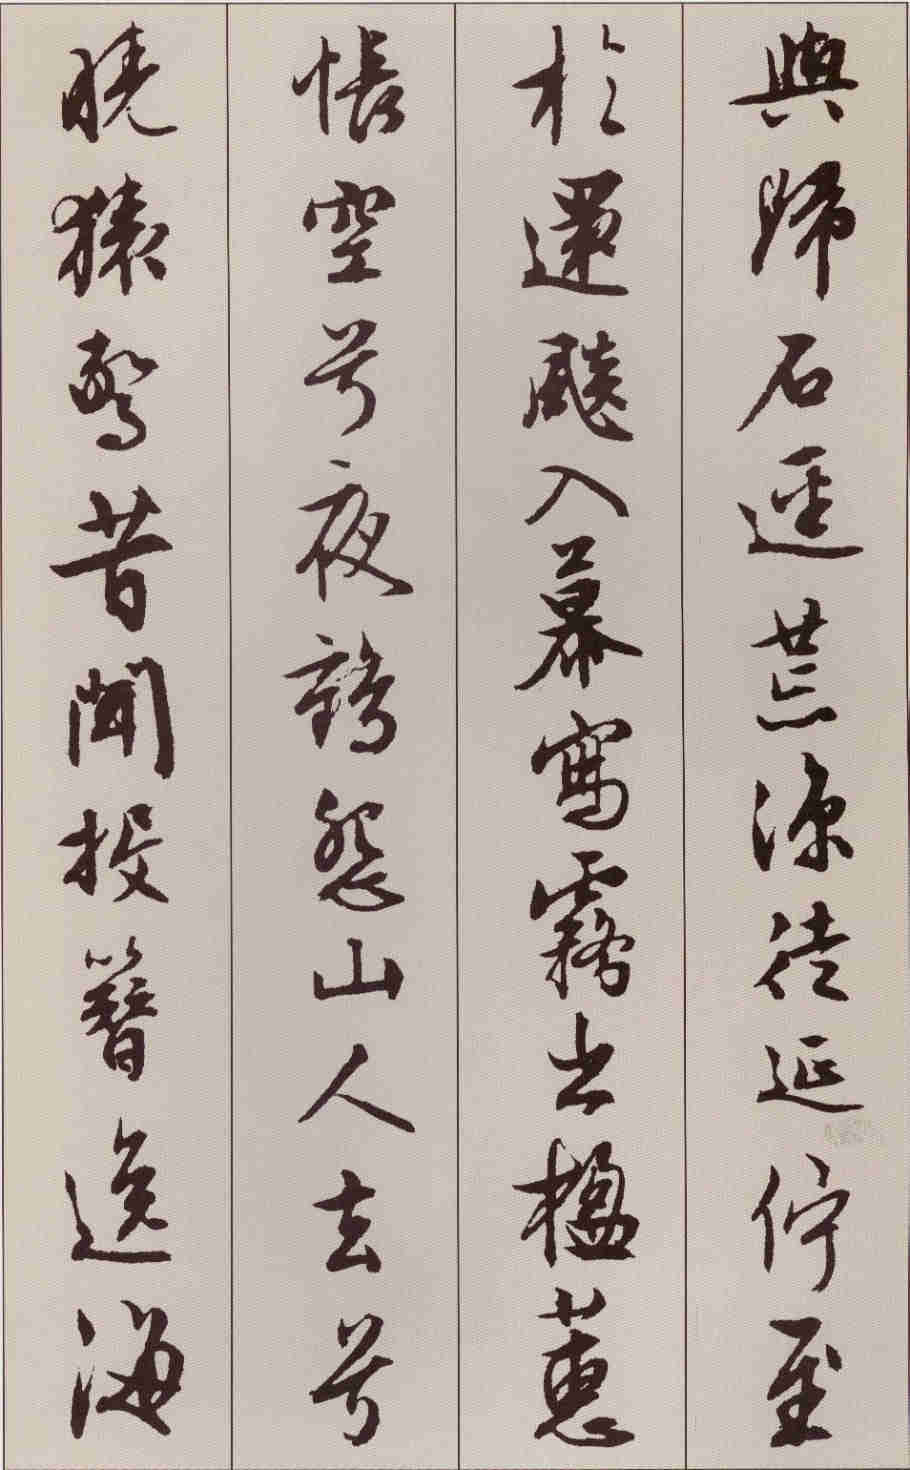 與歸石逕荒涼徒延佇至
於還飆入幕寫霧出楹蕙
帳空兮夜鶴怨山人去兮
曉猿驚昔聞投簪逸海